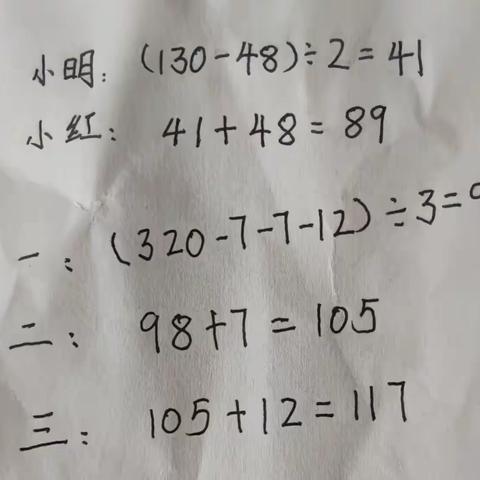 小明：(130-48)÷2=41
小红：41+48=89
一：(320-7-7-12)÷3=
二：98+7=105
三：105+12=117